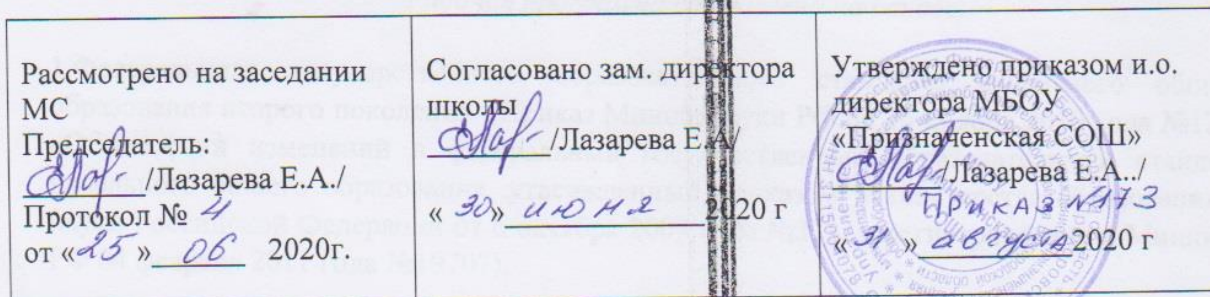 Рассмотрено на заседании
МС
Председатель:
/Лазарева Е.А./
Протокол № 4
от «25» 06 2020г.
Согласовано зам. директора
школы
/Лазарева Е.А/
«30» июня 2020 г
Утверждено приказом и.о.
директора МБОУ
«Призначенская СОШ»
/Лазарева Е.А../
Приказ №173
«31» августа 2020 г